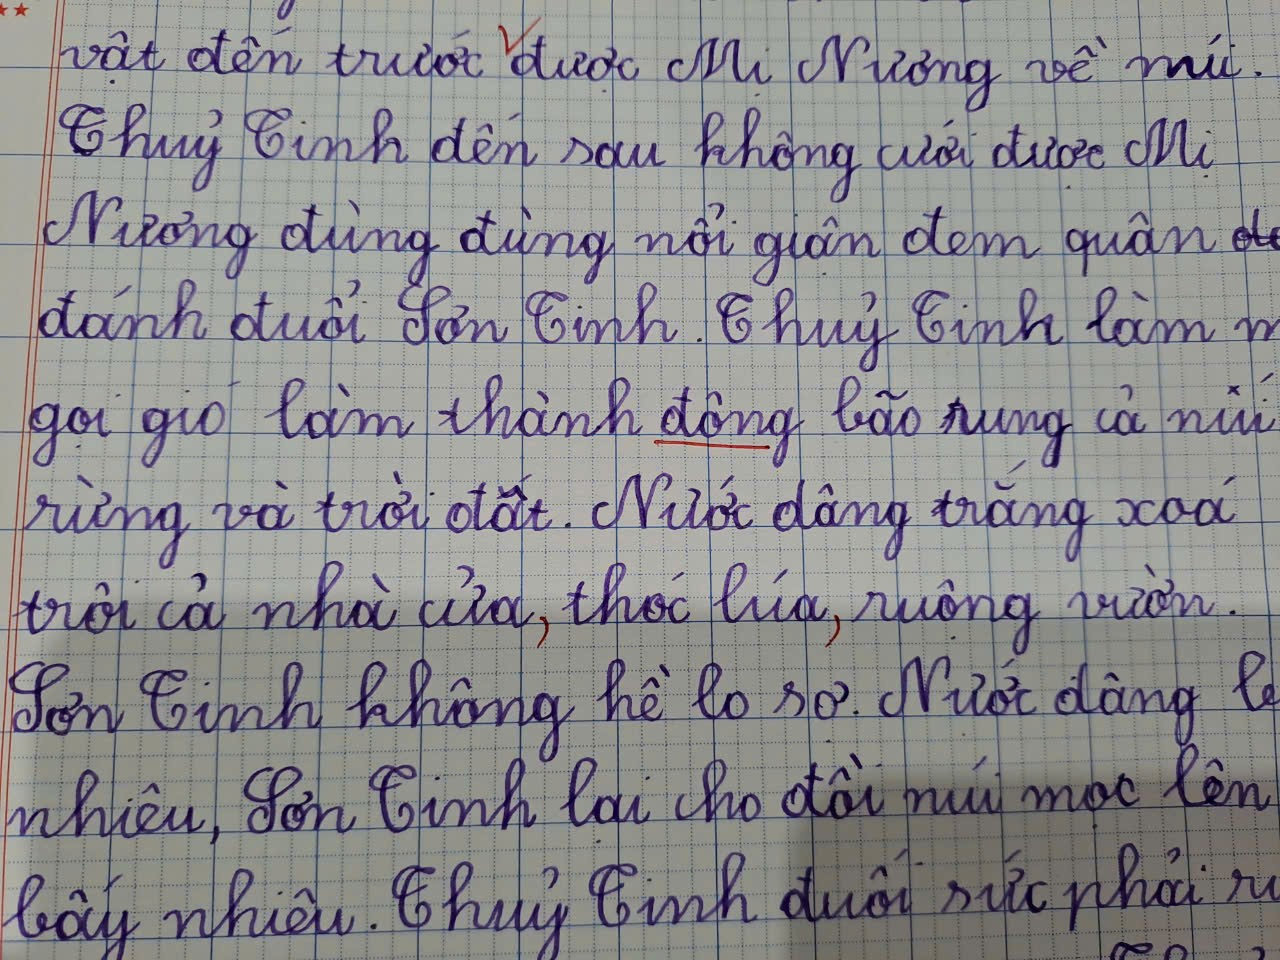 vật đến trước được Mị Nương về núi.
Thuỷ Tinh đến sau không cưới được Mị
Nương đùng đùng nổi giận đem quân
đánh đuổi Sơn Tinh. Thuỷ Tinh làm
gọi gió làm thành dông bão rung cả núi
rừng và trời đất. Nước dâng trắng xoá
trôi cả nhà cửa, thóc lúa, ruộng vườn.
Sơn Tinh không hề lo sợ. Nước dâng
nhiêu, Sơn Tinh lại cho đồi núi mọc lên
bấy nhiêu. Thuỷ Tinh đuối sức phải